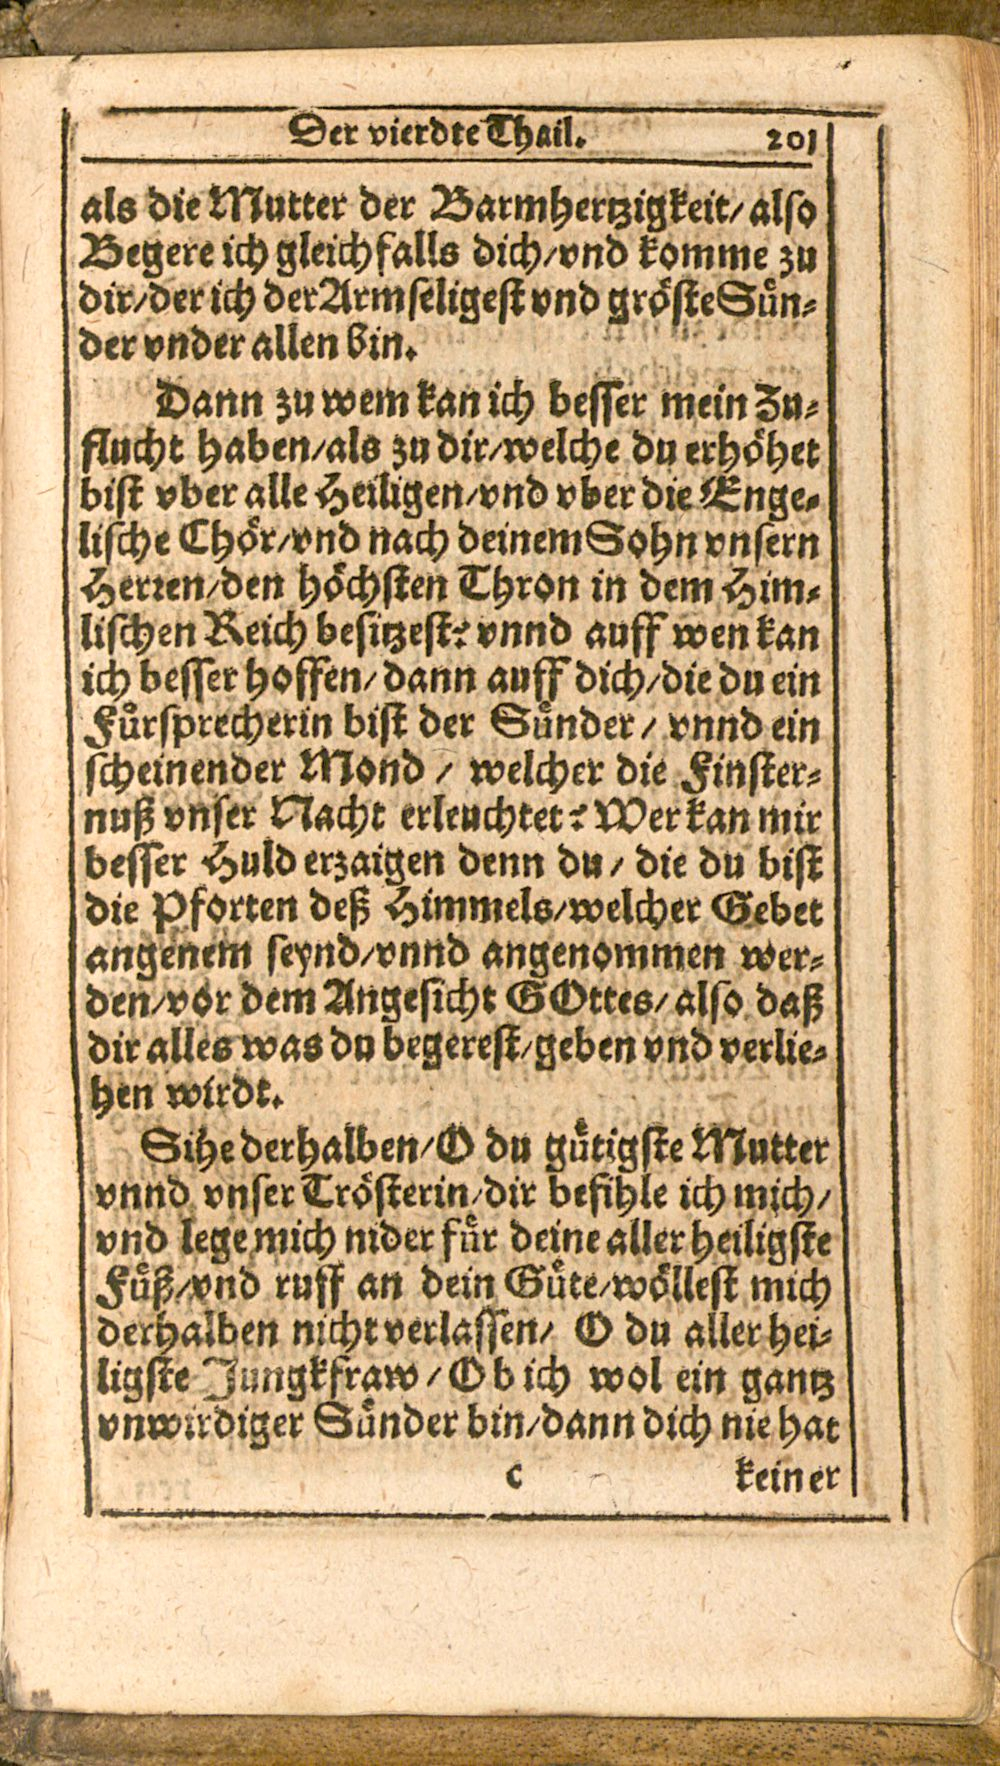 Der vierdte Thail. 201
als die Mutter der Barmhertzigkeit/ also
Begere ich gleichfalls dich/ vnd komme zu
dir/ der ich der Armseligest vnd gröste Sůn-
der vnder allen bin.
Dann zu wem kan ich besser mein Zu-
flucht haben/ als zu dir/ welche du erhöhet
bist vber alle Heiligen/ vnd vber die Enge-
lische Chör/ vnd nach deinem Sohn vnsern
Herren/ den höchsten Thron in dem Him-
lischen Reich besitzest? vnnd auff wen kan
ich besser hoffen/ dann auff dich/ die du ein
Fůrsprecherin bist der Sůnder/ vnnd ein
scheinender Mond/ welcher die Finster-
nuß vnser Nacht erleuchtet? Wer kan mir
besser Huld erzaigen denn du/ die du bist
die Pforten deß Himmels/ welcher Gebet
angenem seynd/ vnnd angenommen wer-
den/ vor dem Angesicht GOttes/ also daß
dir alles was du begerest/ geben vnd verlie-
hen wirdt.
Sihe derhalben/ O du gůtigste Mutter
vnnd vnser Trösterin/ dir befihle ich mich/
vnd lege mich nider fůr deine aller heiligste
Fůß/ vnd ruff an dein Gůte/ wöllest mich
derhalben nicht verlassen/ O du aller hei-
ligste Jungkfraw/ Ob ich wol ein gantz
vnwirdiger Sůnder bin/ dann dich nie hat
c keiner